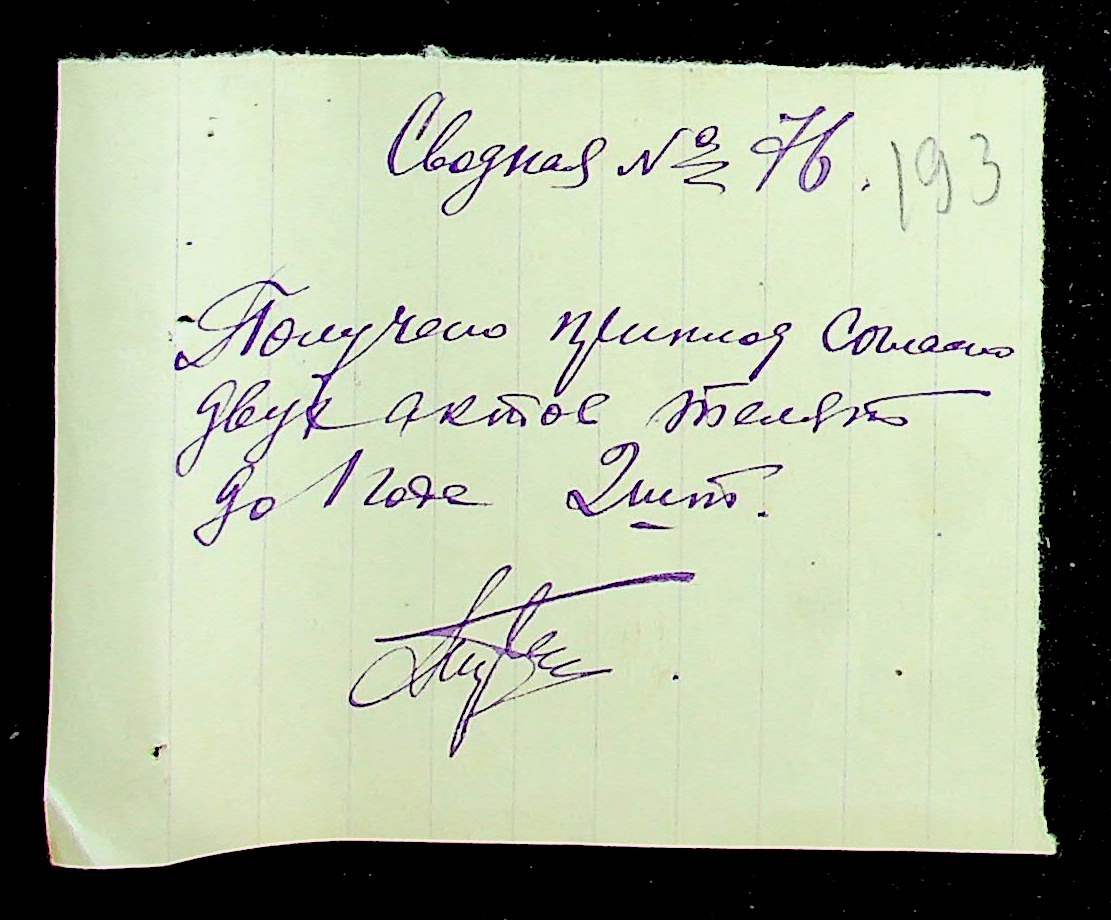 Сводная № 76. 193
Получено приплод согласно
двух актов телят
до 1 года 2 шт.